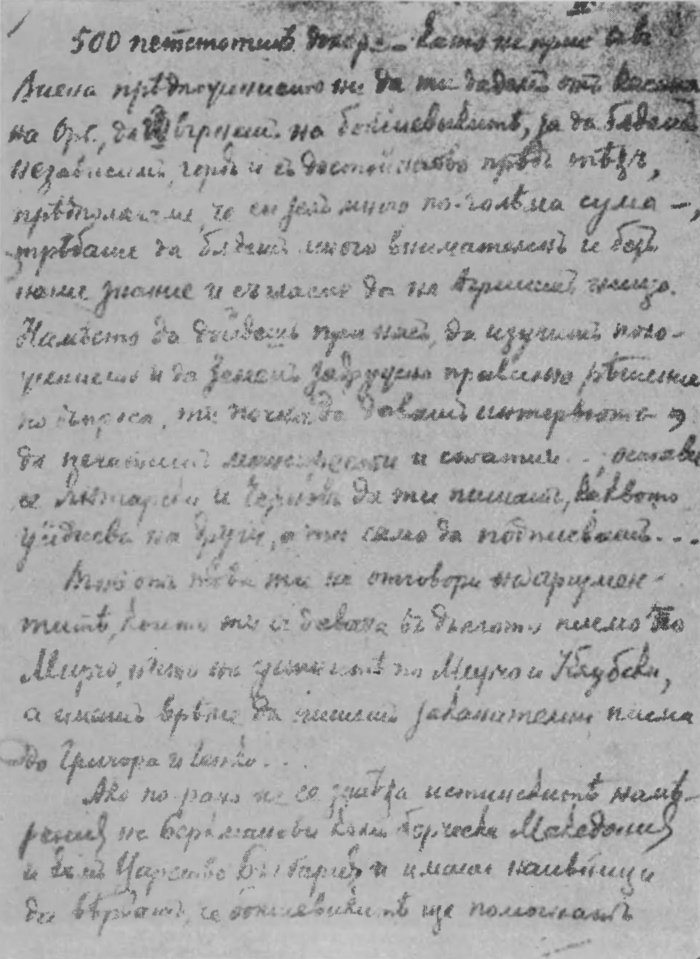 500 петстотинъ долара – като те приехъ въ
Виена прѣдпочитахме ние да ти дадемъ от касата
на Орг., да ги върнешъ на болшевикитѣ, за да бѫдешъ
независимъ, гордъ и съ достойнство прѣдъ тѣхъ,
прѣдполагахме, че си зелъ много по-голѣма сума –,
трѣбваше да бѫдешъ много внимателенъ и безъ
наше знание и съгласие да не вършишъ нищо.
Намѣсто да дойдешъ при насъ, да изучимъ поло-
жението и да земемъ задружно правилно рѣшение
по въпроса, ти почна да давашъ интервюта и
да печатишъ манифести и статии .., остави
се Влахов и Чернювъ да ти пишатъ, каквото
уйдисва на други, а ти само да подписвашъ...
Вмѣсто това ти не отговори на аргумен-
титѣ, които ти се даваха въ дългото писмо по
Мирчо, нито на устнитѣ по Мирчо и Кюбски,
а имашъ врѣме да пишешъ заканителни писма
до Григора и Ванко...
Ако по рано не се знаеха истинскитѣ намѣ-
рения на Беркманови къмъ Гърческа Македония
и къмъ Царство България и имаше наивници
да вѣрватъ, че болшевикитѣ ще помогнатъ